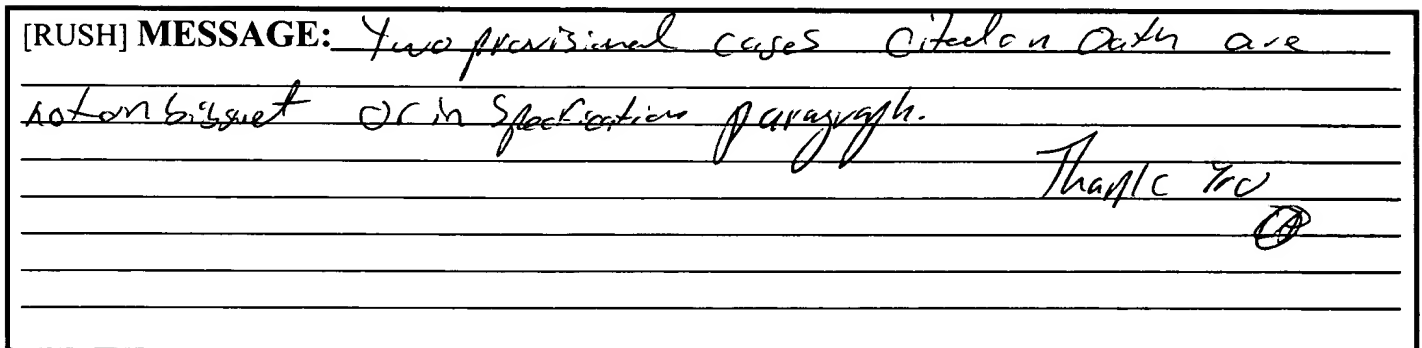 [RUSH] MESSAGE: Two provisional cases cited on Oath are
not on bib sheet or in Specification paragraph.
Thank You